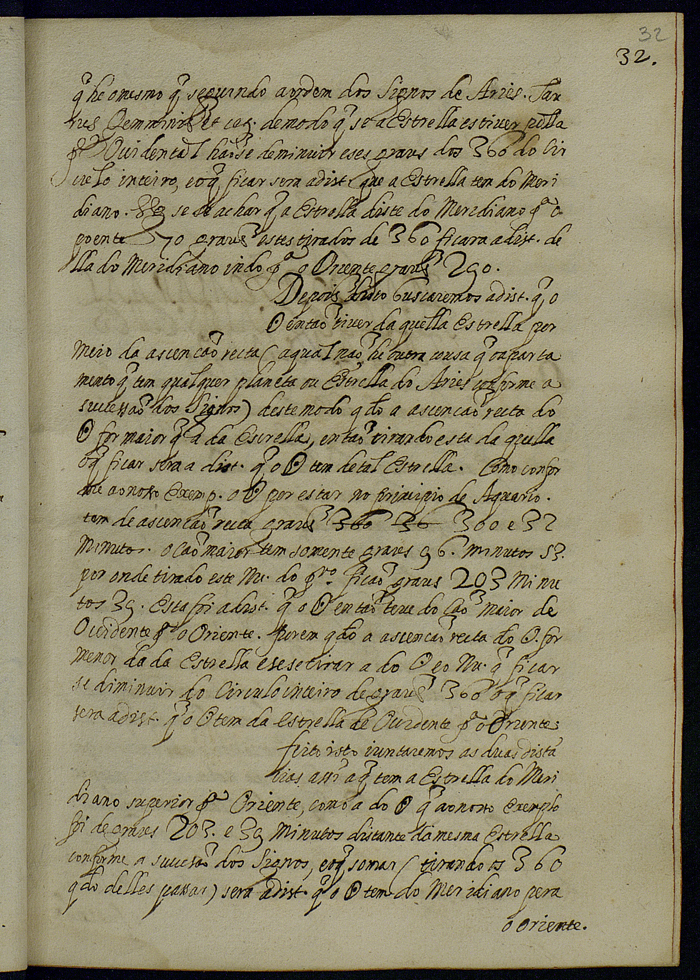 32
32.
q̃ he o mesmo q̃ seguindo a ordem dos Signos de Aries. Tau
rus Gemminis et caq. de modo q̃ se a Estrella estiver pella
pte Ocidental haõse deminuir eses graos dos 360 do Cir
culo inteiro, e o q̃ ficar sera a dist. que a Estrella tem do Meri
diano. se se achar q̃ a Estrella diste do Meridiano pa o
poente 70 graos estes tirados de 360 ficara a dist. de
lla do Meridiano indo pa o Oriente graos 290.
Depois disto buscaremos a dist. q̃ o
☉ entaõ tiver daquella Estrella por
meio da ascencaõ recta (a qual naõ he outra cousa q̃ o aparta
mento q̃ tem qualquer planeta ou Estrella do Aries conforme a
sucessaõ dos Signos) deste modo qdo a ascencaõ recta do
☉ for maior q̃ a da Estrella, entaõ tirando esta daquella
o q̃ ficar sera a dist. q̃ o ☉ tem de tal Estrella. Como confor
me ao noso Exemp. o ☉ por estar no principio de Aquario.
tem de ascencaõ recta graos 360 e 32
Minutos. o Caõ maior tem somente graos 96. minutos 53.
por onde tirado este Nu. do pro. ficaõ graos 203 Minu
tos 39. Esta foi a dist. q̃ o ☉ entaõ teve do Caõ Maior de
Ocidente pa o Oriente. Porem qdo a ascencaõ recta do ☉ for
menor da da Estrella e se se tirar a do ☉ e o Nu. q̃ ficar
se diminuir do Circulo inteiro de graos 360 o q̃ ficar
sera a dist. q̃ o ☉ tem da Estrella de Ocidente pa o Oriente
feito isto iuntaremos as duas dista
cias assi a q̃ tem a Estrella do Meri
diano superior pa Oriente, como a do ☉ q̃ ao noso Exemplo
foi de graos 203. e 39 Minutos distante da mesma Estrella
conforme a sucesaõ dos Signos, e o q̃ somar (tirando os 360
qdo delles passar) sera a dist. q̃ o ☉ tem do Meridiano pera
o oriente.